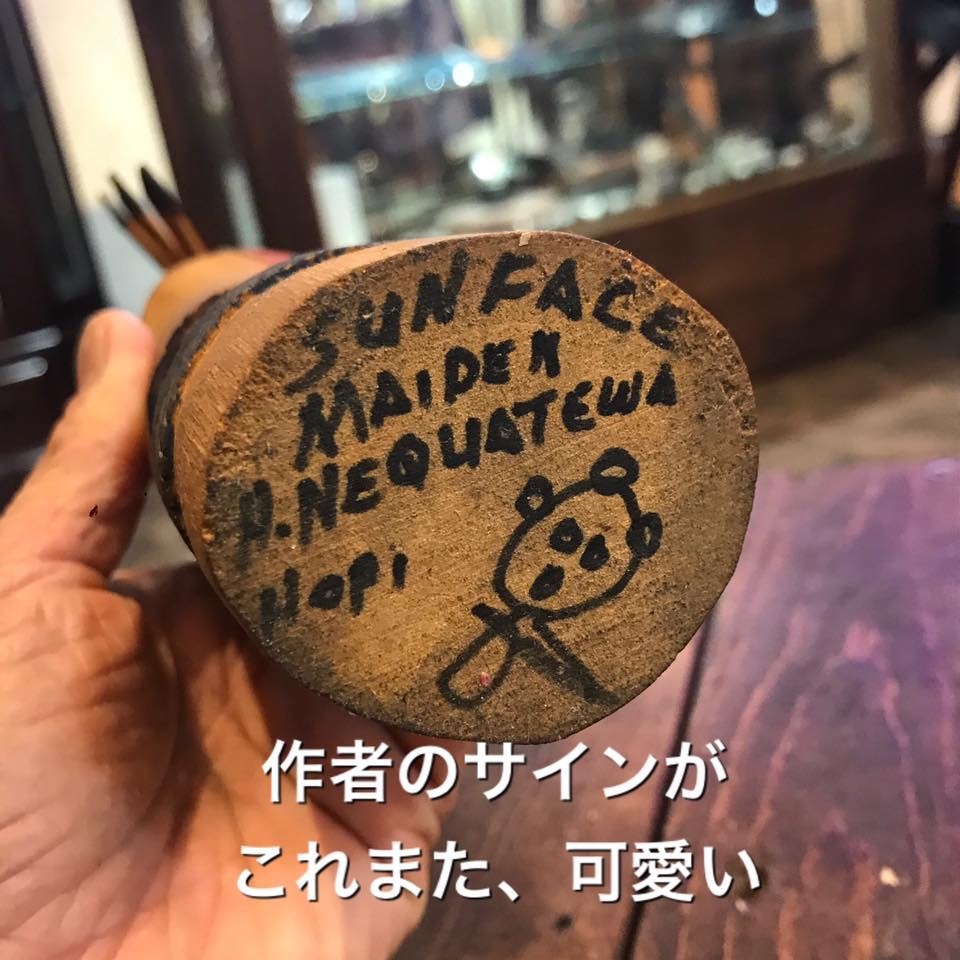 SUNFACE
MAIDEN
A. NEQUATEWA
HOPI
作者のサインが
これまた、可愛い